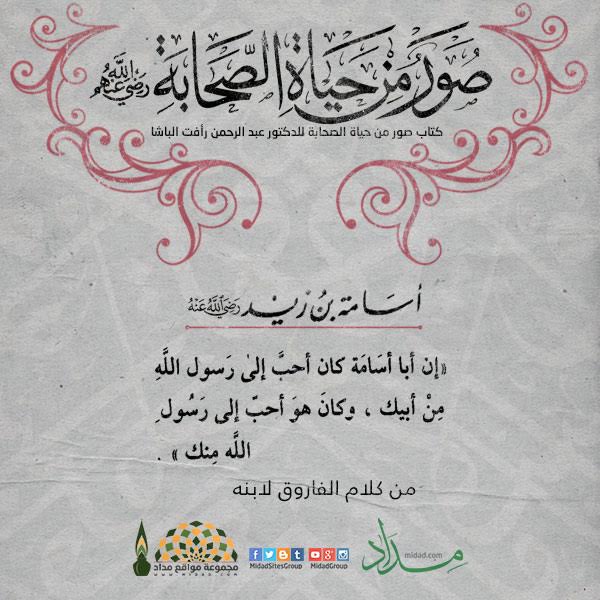 صُوَرٌ مِنْ حَيَاةِ الصَّحَابَةِ رَضِيَ اللَّهُ عَنْهُمْ
كتاب صور من حياة الصحابة للدكتور عبد الرحمن رأفت الباشا
أسَامة بنُ زيْد رَضِيَ اللَّهُ عَنْهُ
«إن أبا أسَامَة كان أحبَّ إلىٰ رَسول اللَّهِ
مِنْ أبيك ، وكانَ هوَ أحبّ إلى رَسُولِ
اللَّه مِنك » .
من كلام الفاروق لابنه
مجموعة مواقع مداد
WWW.MIDAD.COM
MidadSitesGroup
MidadGroup
مداد
midad.com